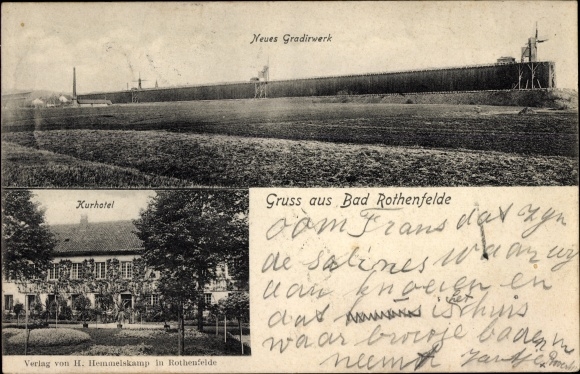 Neues Gradirwerk
Kurhotel
Gruss aus Bad Rothenfelde
oom Frans dat zyn
de salines waar wy
aan knoeien en
dat is het huis
waar broesje baden
neemt Jantje
Verlag von H. Hemmelskamp in Rothenfelde